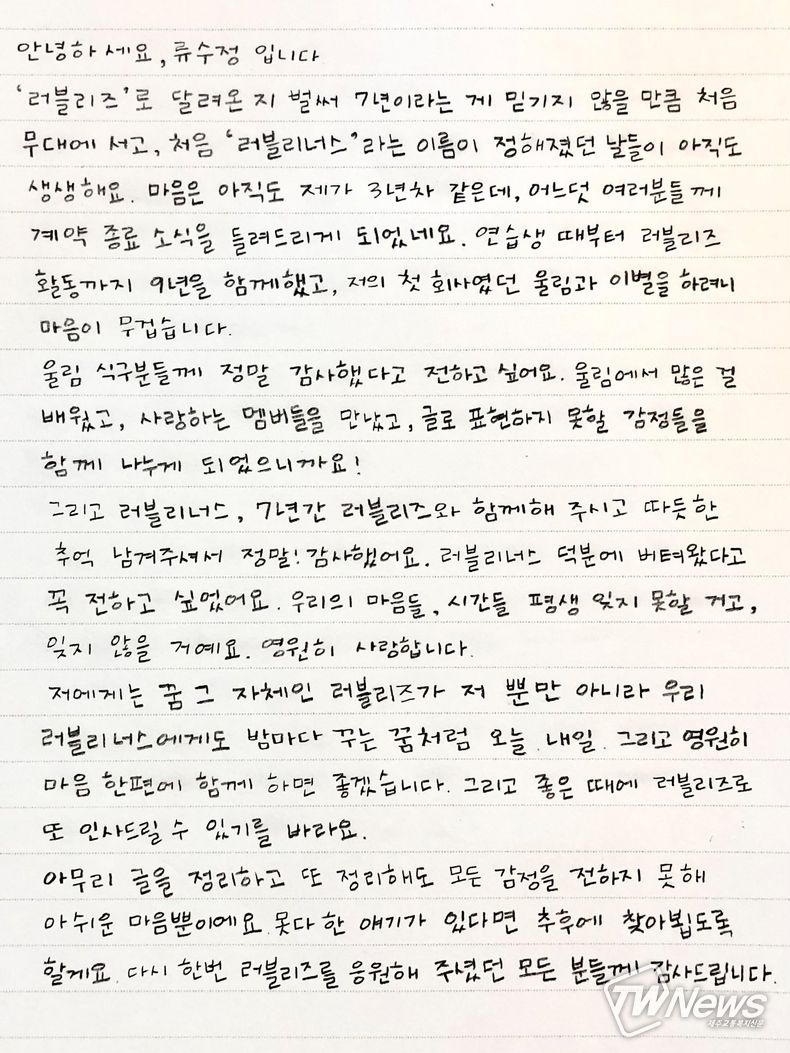 안녕하세요, 류수정 입니다
'러블리즈'로 달려온 지 벌써 7년이라는 게 믿기지 않을 만큼 처음
무대에 서고, 처음 '러블리너스'라는 이름이 정해졌던 날들이 아직도
생생해요. 마음은 아직도 제가 3년차 같은데, 어느덧 여러분들께
계약 종료 소식을 들려드리게 되었네요. 연습생 때부터 러블리즈
활동까지 9년을 함께했고, 저의 첫 회사였던 울림과 이별을 하려니
마음이 무겁습니다.
울림 식구분들께 정말 감사했다고 전하고 싶어요. 울림에서 많은 걸
배웠고, 사랑하는 멤버들을 만났고, 글로 표현하지 못할 감정들을
함께 나누게 되었으니까요!
그리고 러블리너스, 7년간 러블리즈와 함께해 주시고 따듯한
추억 남겨주셔서 정말! 감사했어요. 러블리너스 덕분에 버텨왔다고
꼭 전하고 싶었어요. 우리의 마음들, 시간들 평생 잊지 못할 거고,
잊지 않을 거예요. 영원히 사랑합니다.
저에게는 꿈 그 자체인 러블리즈가 저 뿐만 아니라 우리
러블리너스에게도 밤마다 꾸는 꿈처럼 오늘. 내일. 그리고 영원히
마음 한편에 함께 하면 좋겠습니다. 그리고 좋은 때에 러블리즈로
또 인사드릴 수 있기를 바라요.
아무리 글을 정리하고 또 정리해도 모든 감정을 전하지 못해
아쉬운 마음뿐이에요. 못다 한 얘기가 있다면 추후에 찾아뵙도록
할게요. 다시 한번 러블리즈를 응원해 주셨던 모든 분들께 감사드립니다.
TWNews
제주교통복지신문